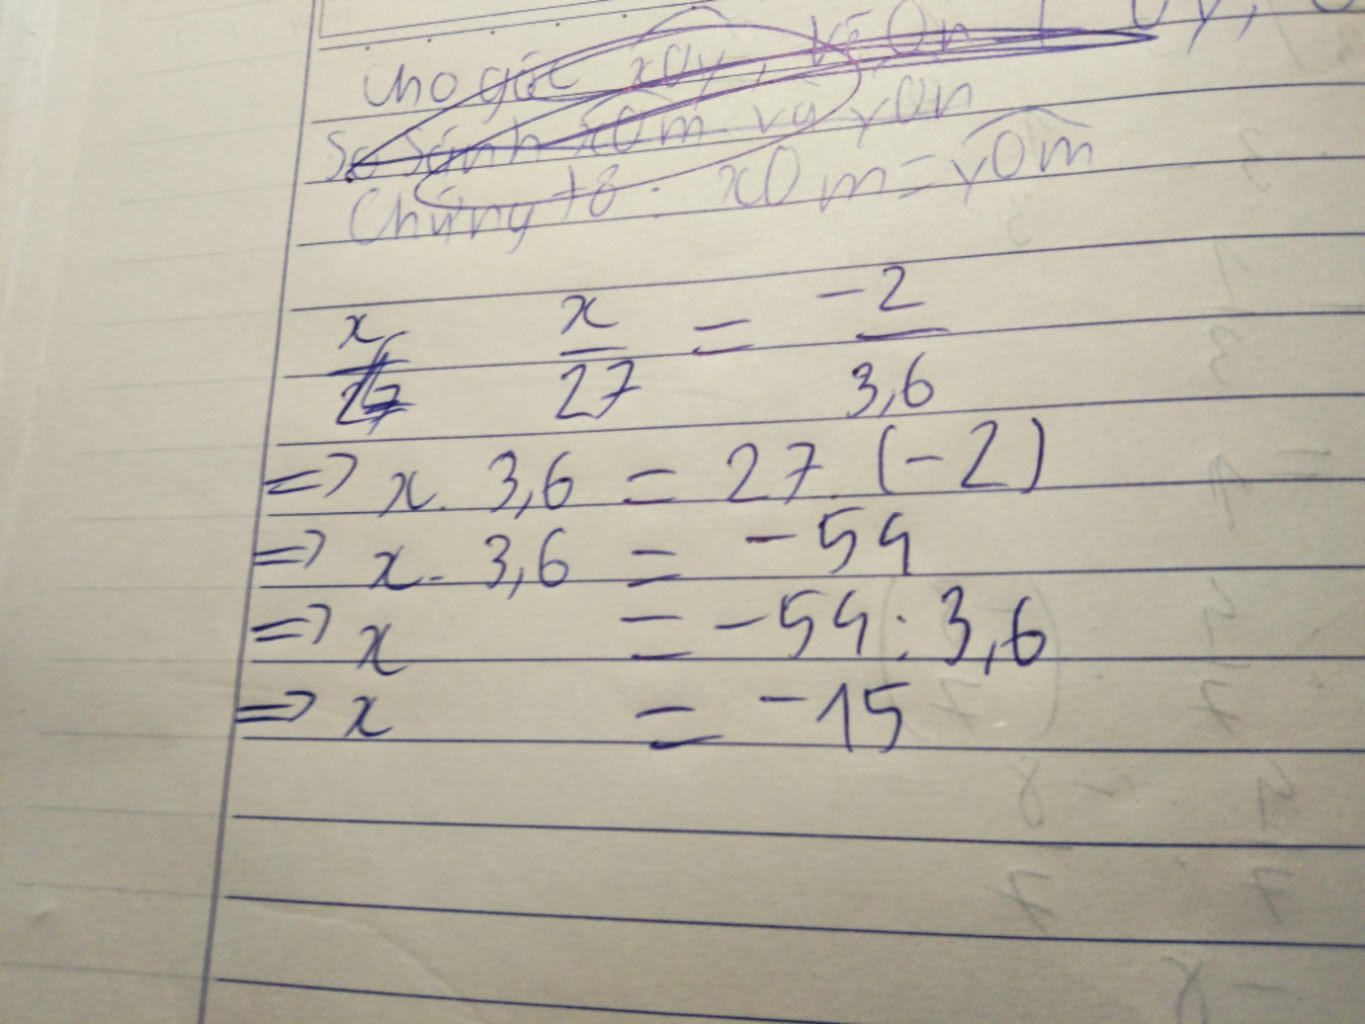 Cho góc xOy, kẻ On ⊥ Oy,
So sánh xOm và yOn
Chứng tỏ: xOm = yOm
x/27 x/27 = -2/3,6
=> x. 3,6 = 27. (-2)
=> x. 3,6 = -54
=> x = -54 : 3,6
=> x = -15